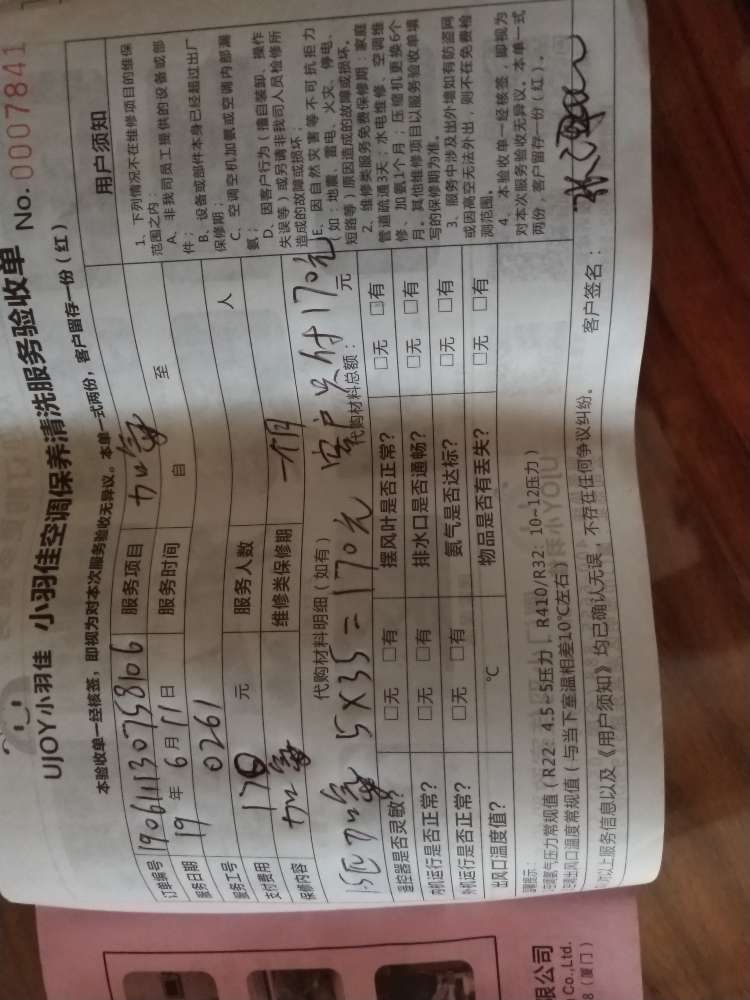 UJOY小羽佳 小羽佳空调保养清洗服务验收单 No.0007841
本验收单一经核签，即视为对本次服务验收无异议。本单一式两份，客户留存一份（红）
订单编号 190611130758106 服务项目 加氟
服务日期 19年6月11日 服务时间 自 至
服务工号 0261
支付费用 170元 服务人数 人
保修内容 加氟 维修类保修期 一个月
代购材料明细（如有） 代购材料总额： 元
加氟 5×35=170元 客户头付170元
遥控器是否灵敏？ □无 □有 摆风叶是否正常？ □无 □有
内机运行是否正常？ □无 □有 排水口是否通畅？ □无 □有
外机运行是否正常？ □无 □有 氨气是否达标？ □无 □有
出风口温度值？ ℃ 物品是否有丢失？ □无 □有
用户须知
1、下列情况不在维修项目的维保
范围之内：
A、非我司员工提供的设备或部
件；
B、设备或部件本身已经超过出厂
保修期；
C、空调空机加氨或空调内部漏
氨；
D、因客户行为（擅自装卸、操作
失误等）或另请非我司人员检修所
造成的故障或损坏；
E、因自然灾害等不可抗拒力
（如：地震、雷电、火灾、停电、
短路等）原因造成的故障或损坏。
2、维修类服务免费保修期：家庭
管道疏通3天；水电维修、空调维
修、加氨1个月；压缩机更换6个
月。其他维修项目以服务验收单填
写的保修期为准。
3、服务中涉及出外墙如有防盗网
或因高空无法外出，则不在免费检
测范围。
4、本验收单一经核签，即视为
对本次服务验收无异议。本单一式
两份，客户留存一份（红）。
温馨提示：
空调氨气压力常规值（R22：4.5~5压力，R410/R32：10~12压力）
空调出风口温度常规值（与当下室温相差10℃左右）
以上服务信息以及《用户须知》均已确认无误，不存在任何争议纠纷。 客户签名：
限公司
Co.,Ltd.
8（厦门）